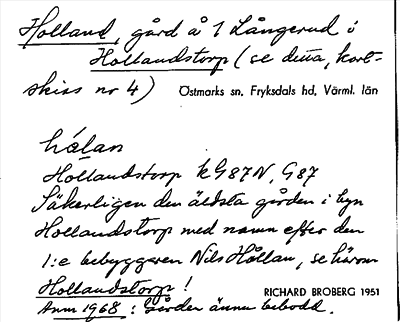 Holland, gård å 1 Långerud i
Hollandstorp (se detta, kart-
skiss nr 4) Östmarks sn, Fryksdals hd, Värml. län
hålan
Hollandstorp kG87N, G87
Säkerligen den äldsta gården i byn
Hollandstorp med namn efter den
1:e bebyggaren Nils Hållan, se härom
Hollandstorp! RICHARD BROBERG 1951
Anm 1968: Gården ännu bebodd.